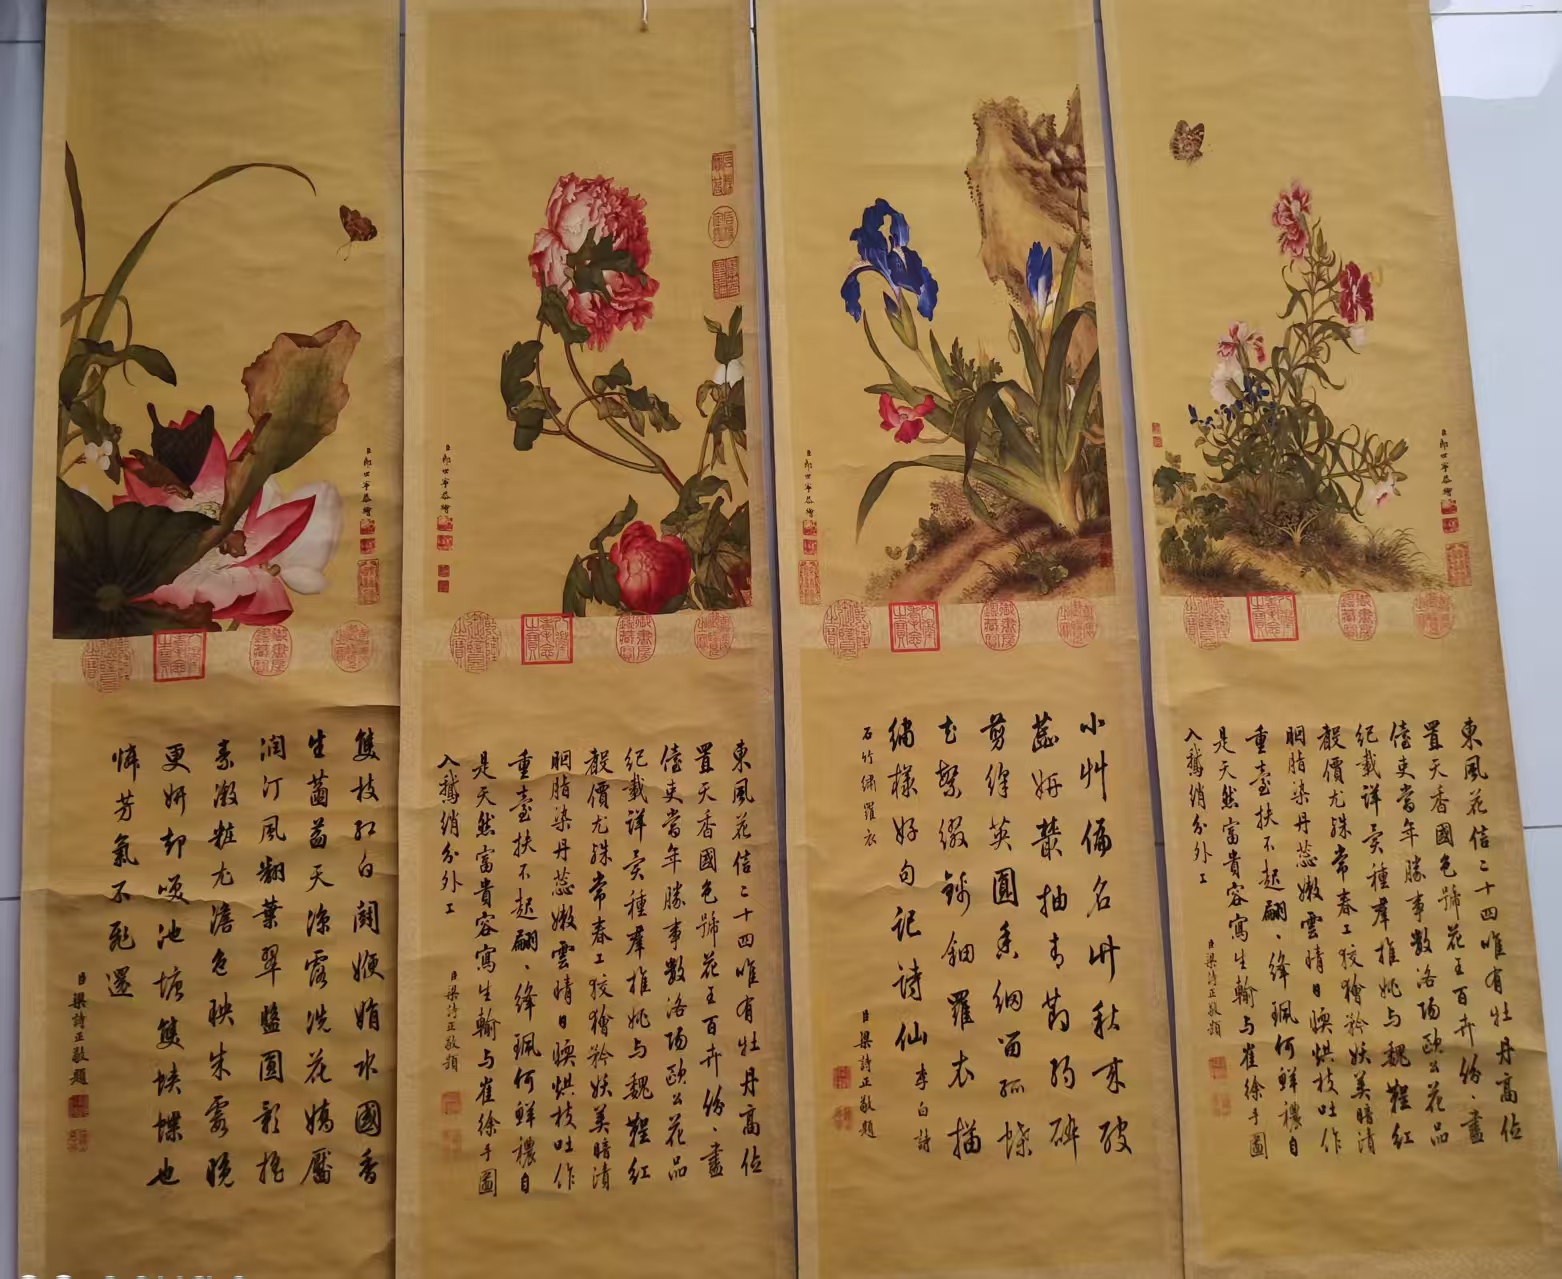 臣郎世寧恭繪
東風花信二十四唯有牡丹高位
置天香國色號花王百卉紛々盡
儓吏當年勝事數洛陽歐公花品
紀載詳異種羣推姚与魏鞓紅
聲價尤殊常春工狡獪矜妖美暗漬
胭脂染丹蕊嫩雲晴日暖烘枝吐作
重臺扶不起翩々絳珮何鮮穠自
是天然富貴容寫生輸与崔徐手圖
入鵞綃分外工
臣梁詩正敬題
臣郎世寧恭繪
小艸偏名竹秋來破
蕊妍叢抽青節約碎
剪絳英圓香細留孤蝶
花繁綴錦鈿羅衣描
繡樣好句記詩仙李白詩
石竹繡羅衣
臣梁詩正敬題
臣郎世寧恭繪
東風花信二十四唯有牡丹高位
置天香國色號花王百卉紛々盡
儓吏當年勝事數洛陽歐公花品
紀載詳異種羣推姚与魏鞓紅
聲價尤殊常春工狡獪矜妖美暗漬
胭脂染丹蕊嫩雲晴日暖烘枝吐作
重臺扶不起翩々絳珮何鮮穠自
是天然富貴容寫生輸与崔徐手圖
入鵞綃分外工
臣梁詩正敬題
臣郎世寧恭繪
雙枝紅白鬪㛹娟水國香
生菡萏天涼露洗花嬌靨
潤汀風翻葉翠盤圓影搖
素激粧尤澹色映朱霞晚
更妍却嘆池塘雙蛺蝶也
憐芳氣不飛還
臣梁詩正敬題